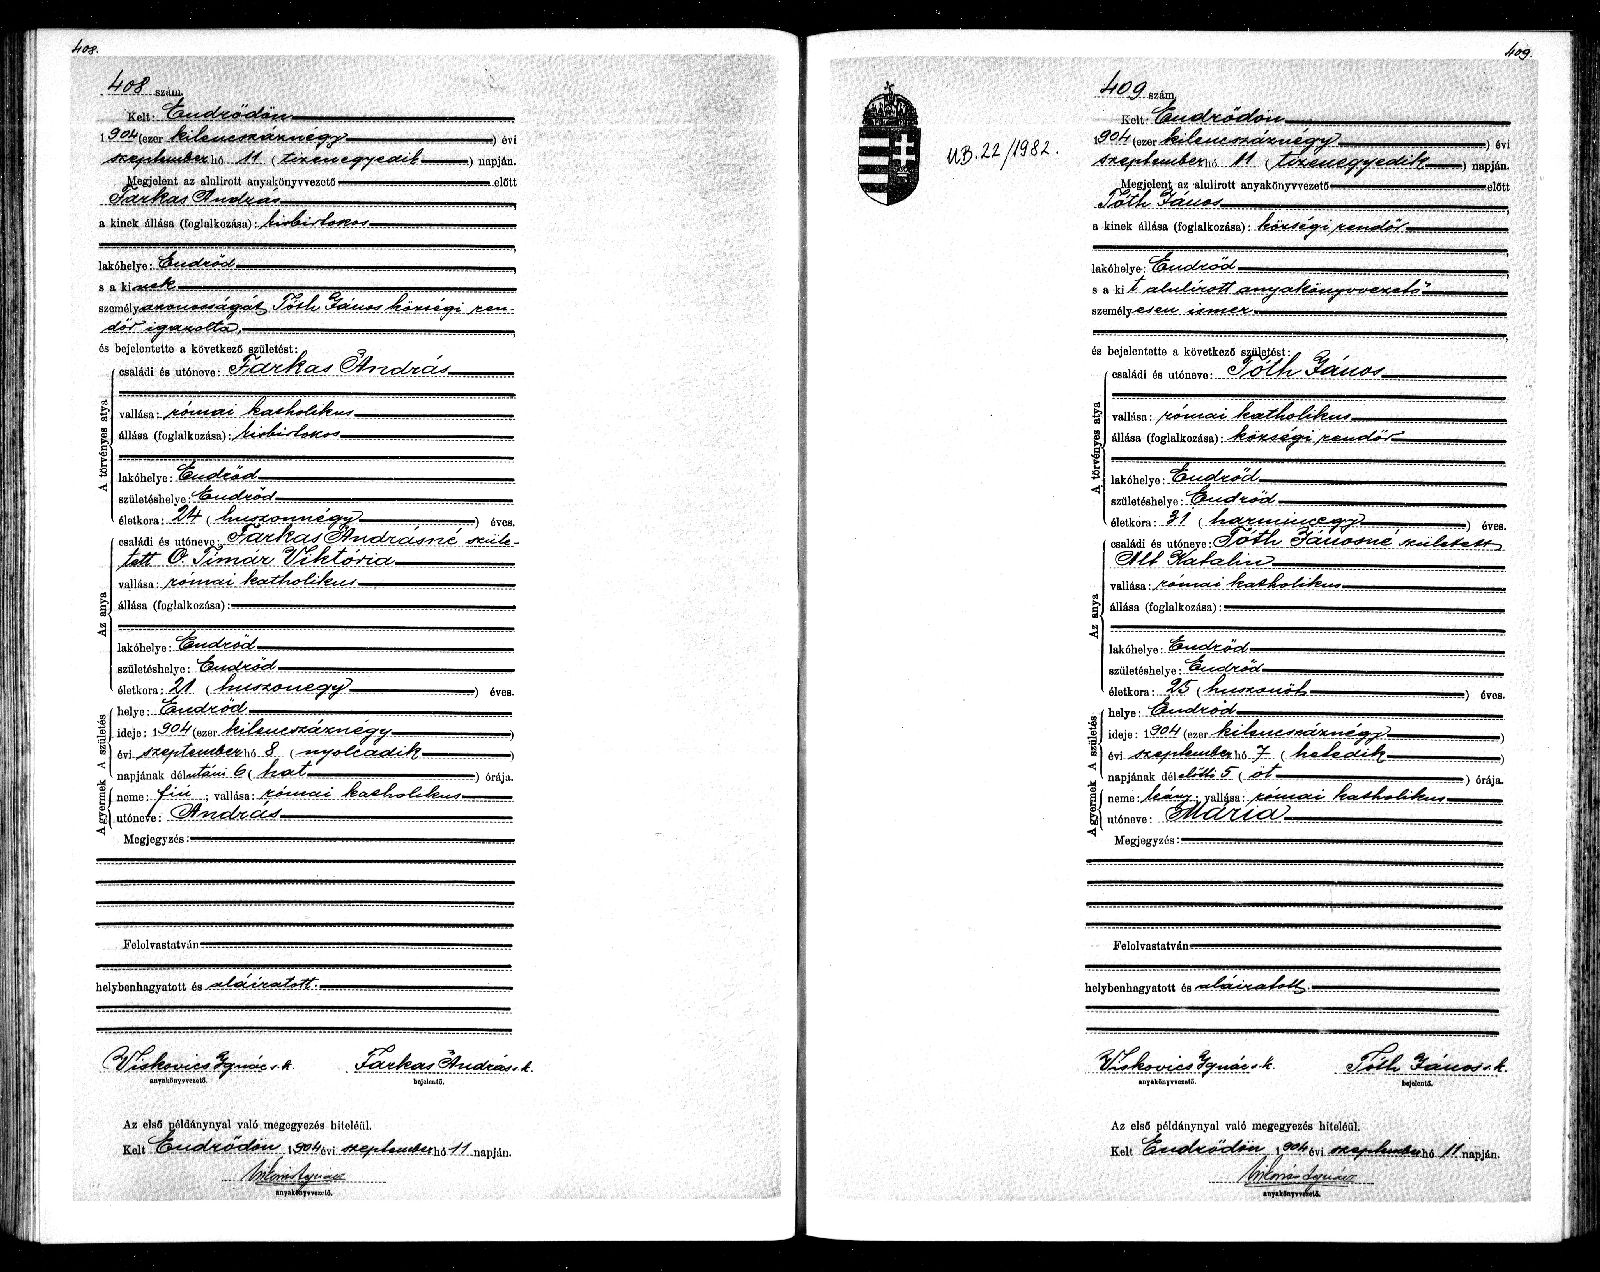 408.
408 szám.
Kelt: Endrődön
1904 (ezer kilencszáznégy) évi
szeptember hó 11 (tizenegyedik) napján.
Megjelent az alulirott anyakönyvvezető előtt
Farkas András
a kinek állása (foglalkozása): kisbirtokos
lakóhelye: Endrőd
s a kinek
személyazonosságát Tóth János községi ren-
dőr igazolta,
és bejelentette a következő születést:
A törvényes atya
családi és utóneve: Farkas András
vallása: római katholikus
állása (foglalkozása): kisbirtokos
lakóhelye: Endrőd
születéshelye: Endrőd
életkora: 24 (huszonnégy) éves.
Az anya
családi és utóneve: Farkas Andrásné szüle-
tett O. Timár Viktória
vallása: római katholikus
állása (foglalkozása):
lakóhelye: Endrőd
születéshelye: Endrőd
életkora: 21 (huszonegy) éves.
A születés
helye: Endrőd
ideje: 1904 (ezer kilencszáznégy)
évi szeptember hó 8 (nyolcadik)
napjának délutáni 6 (hat) órája.
A gyermek
neme: fiú; vallása: római katholikus
utóneve: András
Megjegyzés:
Felolvastatván
helybenhagyatott és aláiratott.
Viskovics Ignác s. k. Farkas András s. k.
anyakönyvvezető. bejelentő.
Az első példánynyal való megegyezés hiteléül.
Kelt Endrődön 1904 évi szeptember hó 11 napján.
Viskovics Ignác
anyakönyvvezető.
409.
MB. 22/1982.
409 szám.
Kelt: Endrődön
1904 (ezer kilencszáznégy) évi
szeptember hó 11 (tizenegyedik) napján.
Megjelent az alulirott anyakönyvvezető előtt
Tóth János
a kinek állása (foglalkozása): községi rendőr
lakóhelye: Endrőd
s a kit alulírott anyakönyvvezető
személyesen ismer
és bejelentette a következő születést:
A törvényes atya
családi és utóneve: Tóth János
vallása: római katholikus
állása (foglalkozása): községi rendőr
lakóhelye: Endrőd
születéshelye: Endrőd
életkora: 31 (harmincegy) éves.
Az anya
családi és utóneve: Tóth Jánosné született
Alt Katalin
vallása: római katholikus
állása (foglalkozása):
lakóhelye: Endrőd
születéshelye: Endrőd
életkora: 25 (huszonöt) éves.
A születés
helye: Endrőd
ideje: 1904 (ezer kilencszáznégy)
évi szeptember hó 7 (hetedik)
napjának délelőtti 5 (öt) órája.
A gyermek
neme: leány; vallása: római katholikus
utóneve: Mária
Megjegyzés:
Felolvastatván
helybenhagyatott és aláiratott.
Viskovics Ignác s. k. Tóth János s. k.
anyakönyvvezető. bejelentő.
Az első példánynyal való megegyezés hiteléül.
Kelt Endrődön 1904 évi szeptember hó 11 napján.
Viskovics Ignác
anyakönyvvezető.